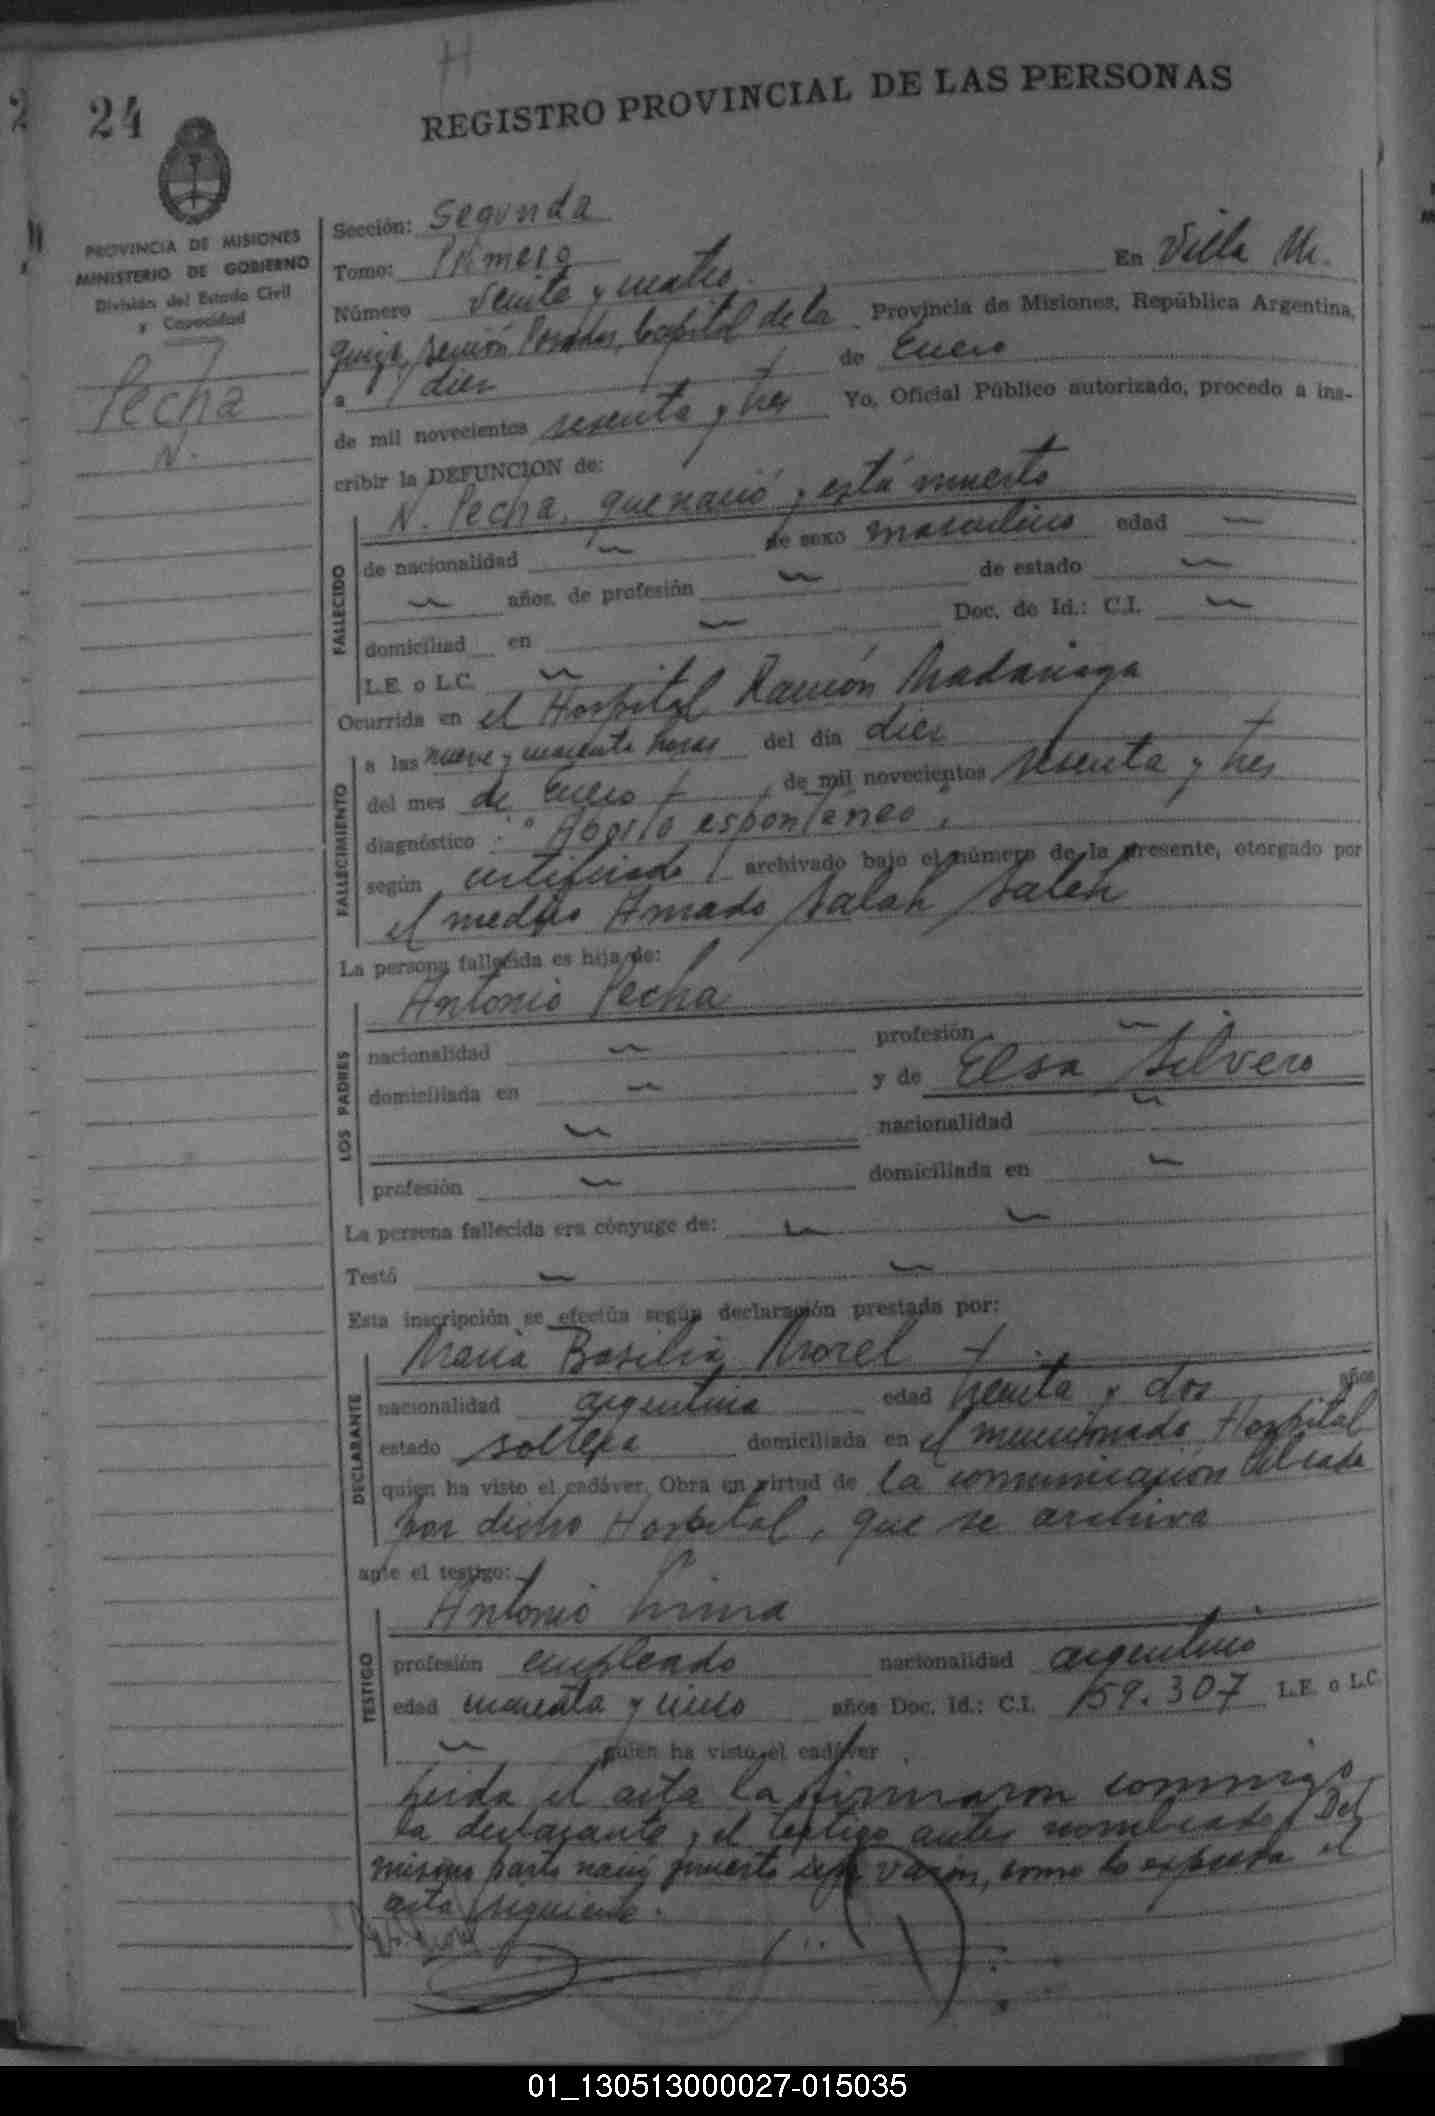 H
24
REGISTRO PROVINCIAL DE LAS PERSONAS
PROVINCIA DE MISIONES
MINISTERIO DE GOBIERNO
División del Estado Civil
y Capacidad
Pecha
N.
Sección: Segunda
Tomo: Primero
Número veinte y cuatro. En Villa Ur.
quiza, sección Posadas, Capital de la Provincia de Misiones, República Argentina,
a diez de Enero
de mil novecientos sesenta y tres Yo, Oficial Público autorizado, procedo a ins-
cribir la DEFUNCION de:
N. Pecha, que nació y está muerto
FALLECIDO
de nacionalidad de sexo masculino edad
años, de profesión de estado
domiciliad en Doc. de Id.: C.I.
L.E. o L.C.
Ocurrida en el Hospital Ramón Madariaga
FALLECIMIENTO
a las nueve y cuarenta horas del día diez
del mes de Enero de mil novecientos sesenta y tres
diagnóstico: "Aborto espontaneo",
según certificado archivado bajo el número de la presente, otorgado por
el medico Amado Salah Saleh
La persona fallecida es hija de:
Antonio Pecha
LOS PADRES
nacionalidad profesión
domiciliada en y de Elsa Silvero
nacionalidad
profesión domiciliada en
La persona fallecida era cónyuge de:
Testó
Esta inscripción se efectúa según declaración prestada por:
María Basilia Morel
DECLARANTE
nacionalidad argentina edad treinta y dos años
estado soltera domiciliada en el mencionado Hospital
quien ha visto el cadáver. Obra en virtud de la comunicación
por dicho Hospital, que se archiva
ante el testigo:
Antonio
TESTIGO
profesión empleado nacionalidad argentino
edad cuarenta y cinco años Doc. Id.: C.I. 159.307 L.E. o L.C.
quien ha visto el cadáver
Leida el acta la firmaron conmigo
la declarante y el testigo antes nombrado. Del
mismo parto nació muerto varón, como lo expresa el
acta siguiente.
01_130513000027-015035